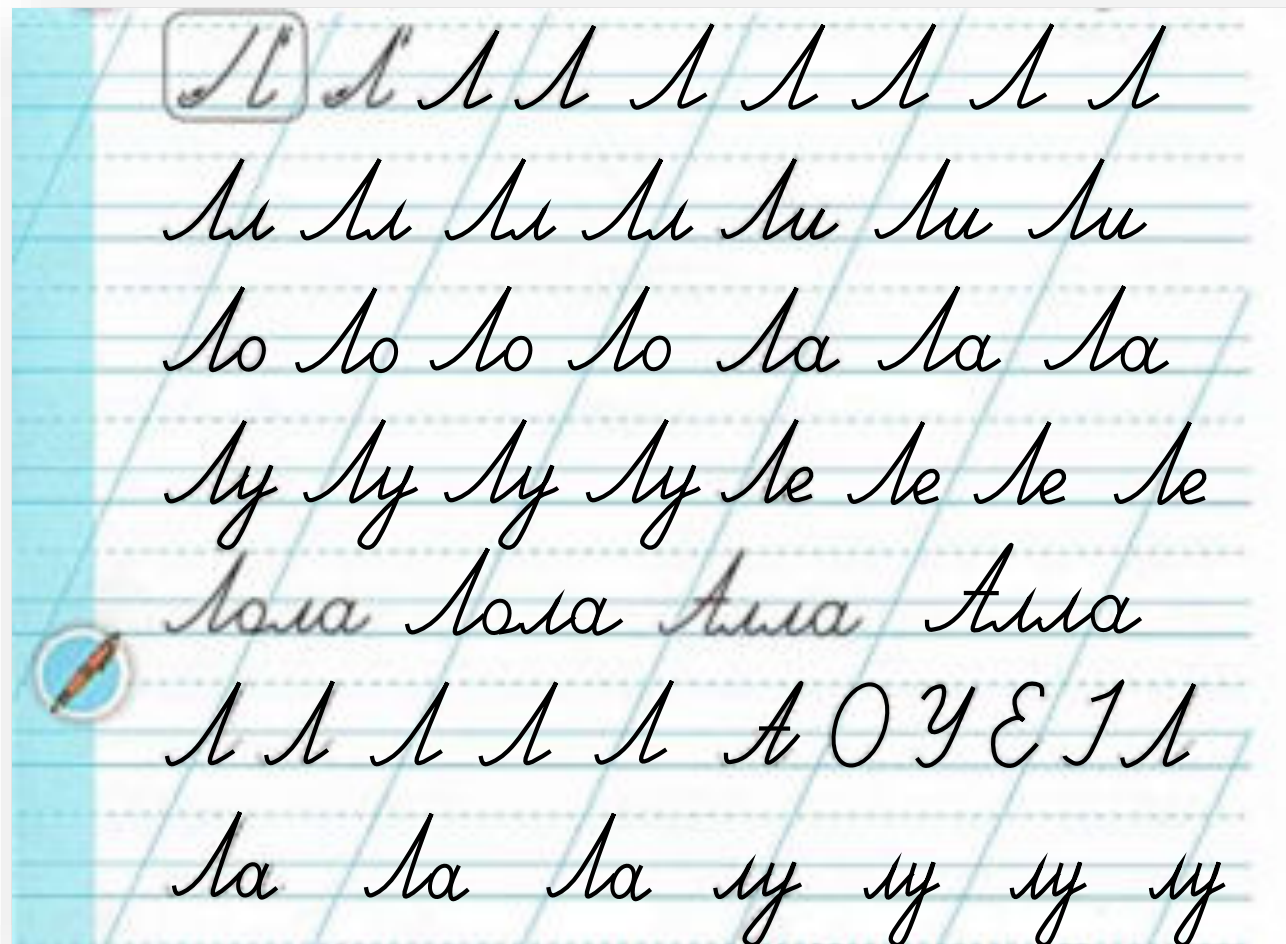 Л Л Л Л Л Л Л Л Л
Лл Лл Лл Лл Ли Ли Ли
Ло Ло Ло Ло Ла Ла Ла
Лу Лу Лу Лу Ле Ле Ле Ле
Лола Лола Алла Алла
Л Л Л Л Л А О У Е І Л
Ла Ла Ла лу лу лу лу